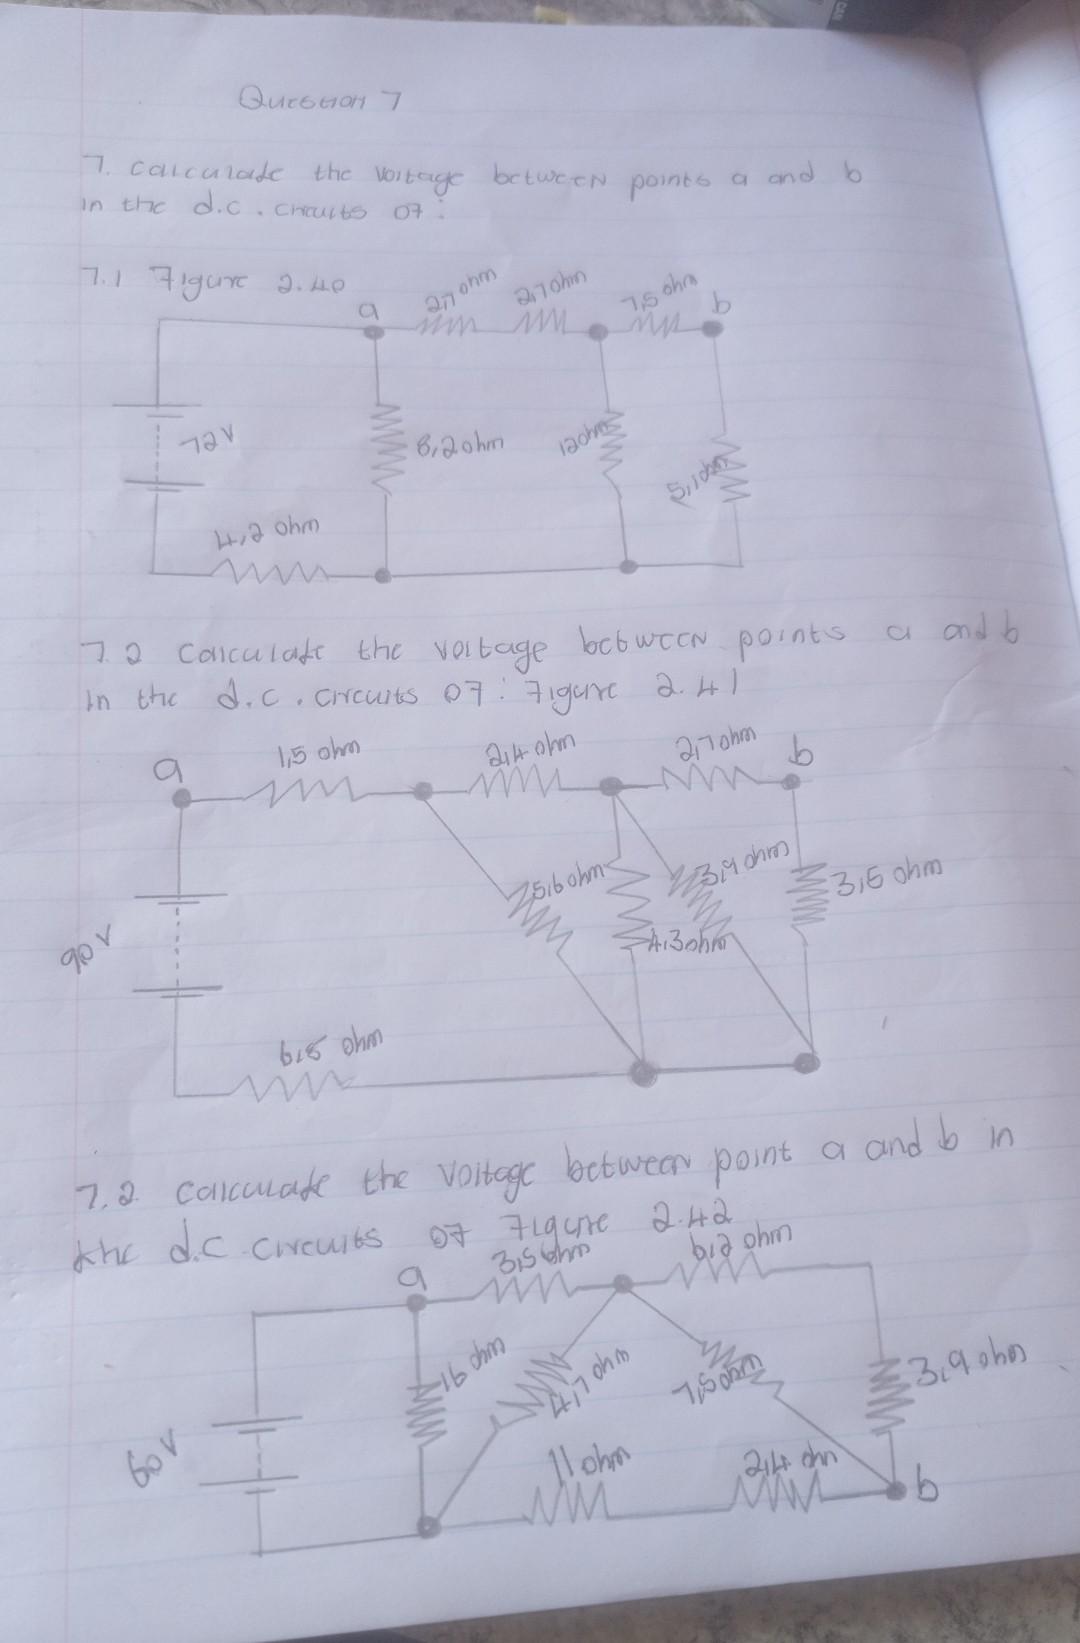 Question 7
7. Calculate the voltage between points a and b
in the d.c. circuits of:
7.1 Figure 2.40
a
2,7 ohm
2,7 ohm
7,5 ohm
b
72V
8,2 ohm
12ohm
5,1ohm
4,2 ohm
7.2 Calculate the voltage between points a and b
in the d.c. circuits of: Figure 2.41
a
1,5 ohm
2,4 ohm
2,7 ohm
b
90V
5,6 ohm
3,9 ohm
3,6 ohm
4,3ohm
ohm
7.2. Calculate the voltage between point a and b in
the d.c. circuits of Figure 2.42
a
ohm
6,2 ohm
60V
16 ohm
4,7 ohm
ohm
3,9 ohm
11 ohm
2,4 ohm
b